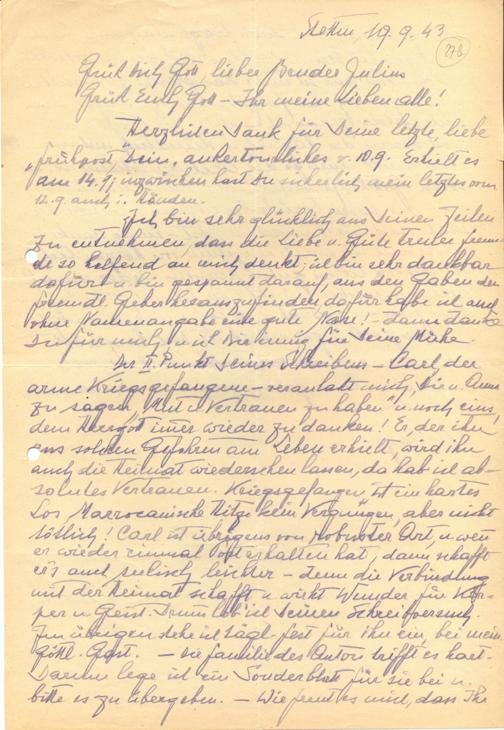 Stettin, 19.9.43
276
Grüß Dich Gott, lieber Bruder Julius
Grüß Euch Gott - Ihr meine Lieben alle!
Herzlichen Dank für Deine letzte, liebe
"Frühpost", Dein v. 10.9. Erhielt es
am 14.9; inzwischen hast Du sicherlich mein letztes vom
12.9. auch i. Händen.
Ich bin sehr glücklich aus Deinen Zeilen
zu entnehmen, dass die Liebe u. Güte treuer Freun-
de so helfend an mich denkt; ich bin sehr dankbar
dafür u. bin gespannt darauf, aus den Gaben den
freundl. Geber herauszufinden, dafür habe ich auch
ohne Namenangabe eine gute "Nase"! - Dann danke
Du für mich u. ich für Deine Mühe.
Der II. Punkt Deines Schreibens - Carl, der
arme Kriegsgefangene - veranlaßt mich, Dir u. Anna
zu sagen, "Mut u. Vertrauen zu haben" u. noch eins,
dem Herrgott immer wieder zu danken! Er, der ihn
aus solchen Gefahren am Leben erhielt, wird ihn
auch die Heimat wiedersehen lassen, da hab ich ab-
solutes Vertrauen. "Kriegsgefangen" ist ein hartes
Los, Marrocanische Hitze kein Vergnügen, aber nicht
tödlich! Carl ist übrigens von robuster Art, u. wenn
er wieder einmal Post erhalten hat, dann schafft
er's auch seelisch leichter - denn die Verbindung
mit der Heimat schafft u. wirkt Wunder für Kör-
per u. Geist. Drum lob' ich Deinen Schreibversuch.
Im übrigen stehe ich tägl. fest für ihn ein, bei mein.
Göttl. Gast. - Die Familie des Anton trifft es hart.
Darum lege ich ein Sonderblatt für sie bei u.
bitte es zu übergeben. - Wie freut es mich, dass Ihr